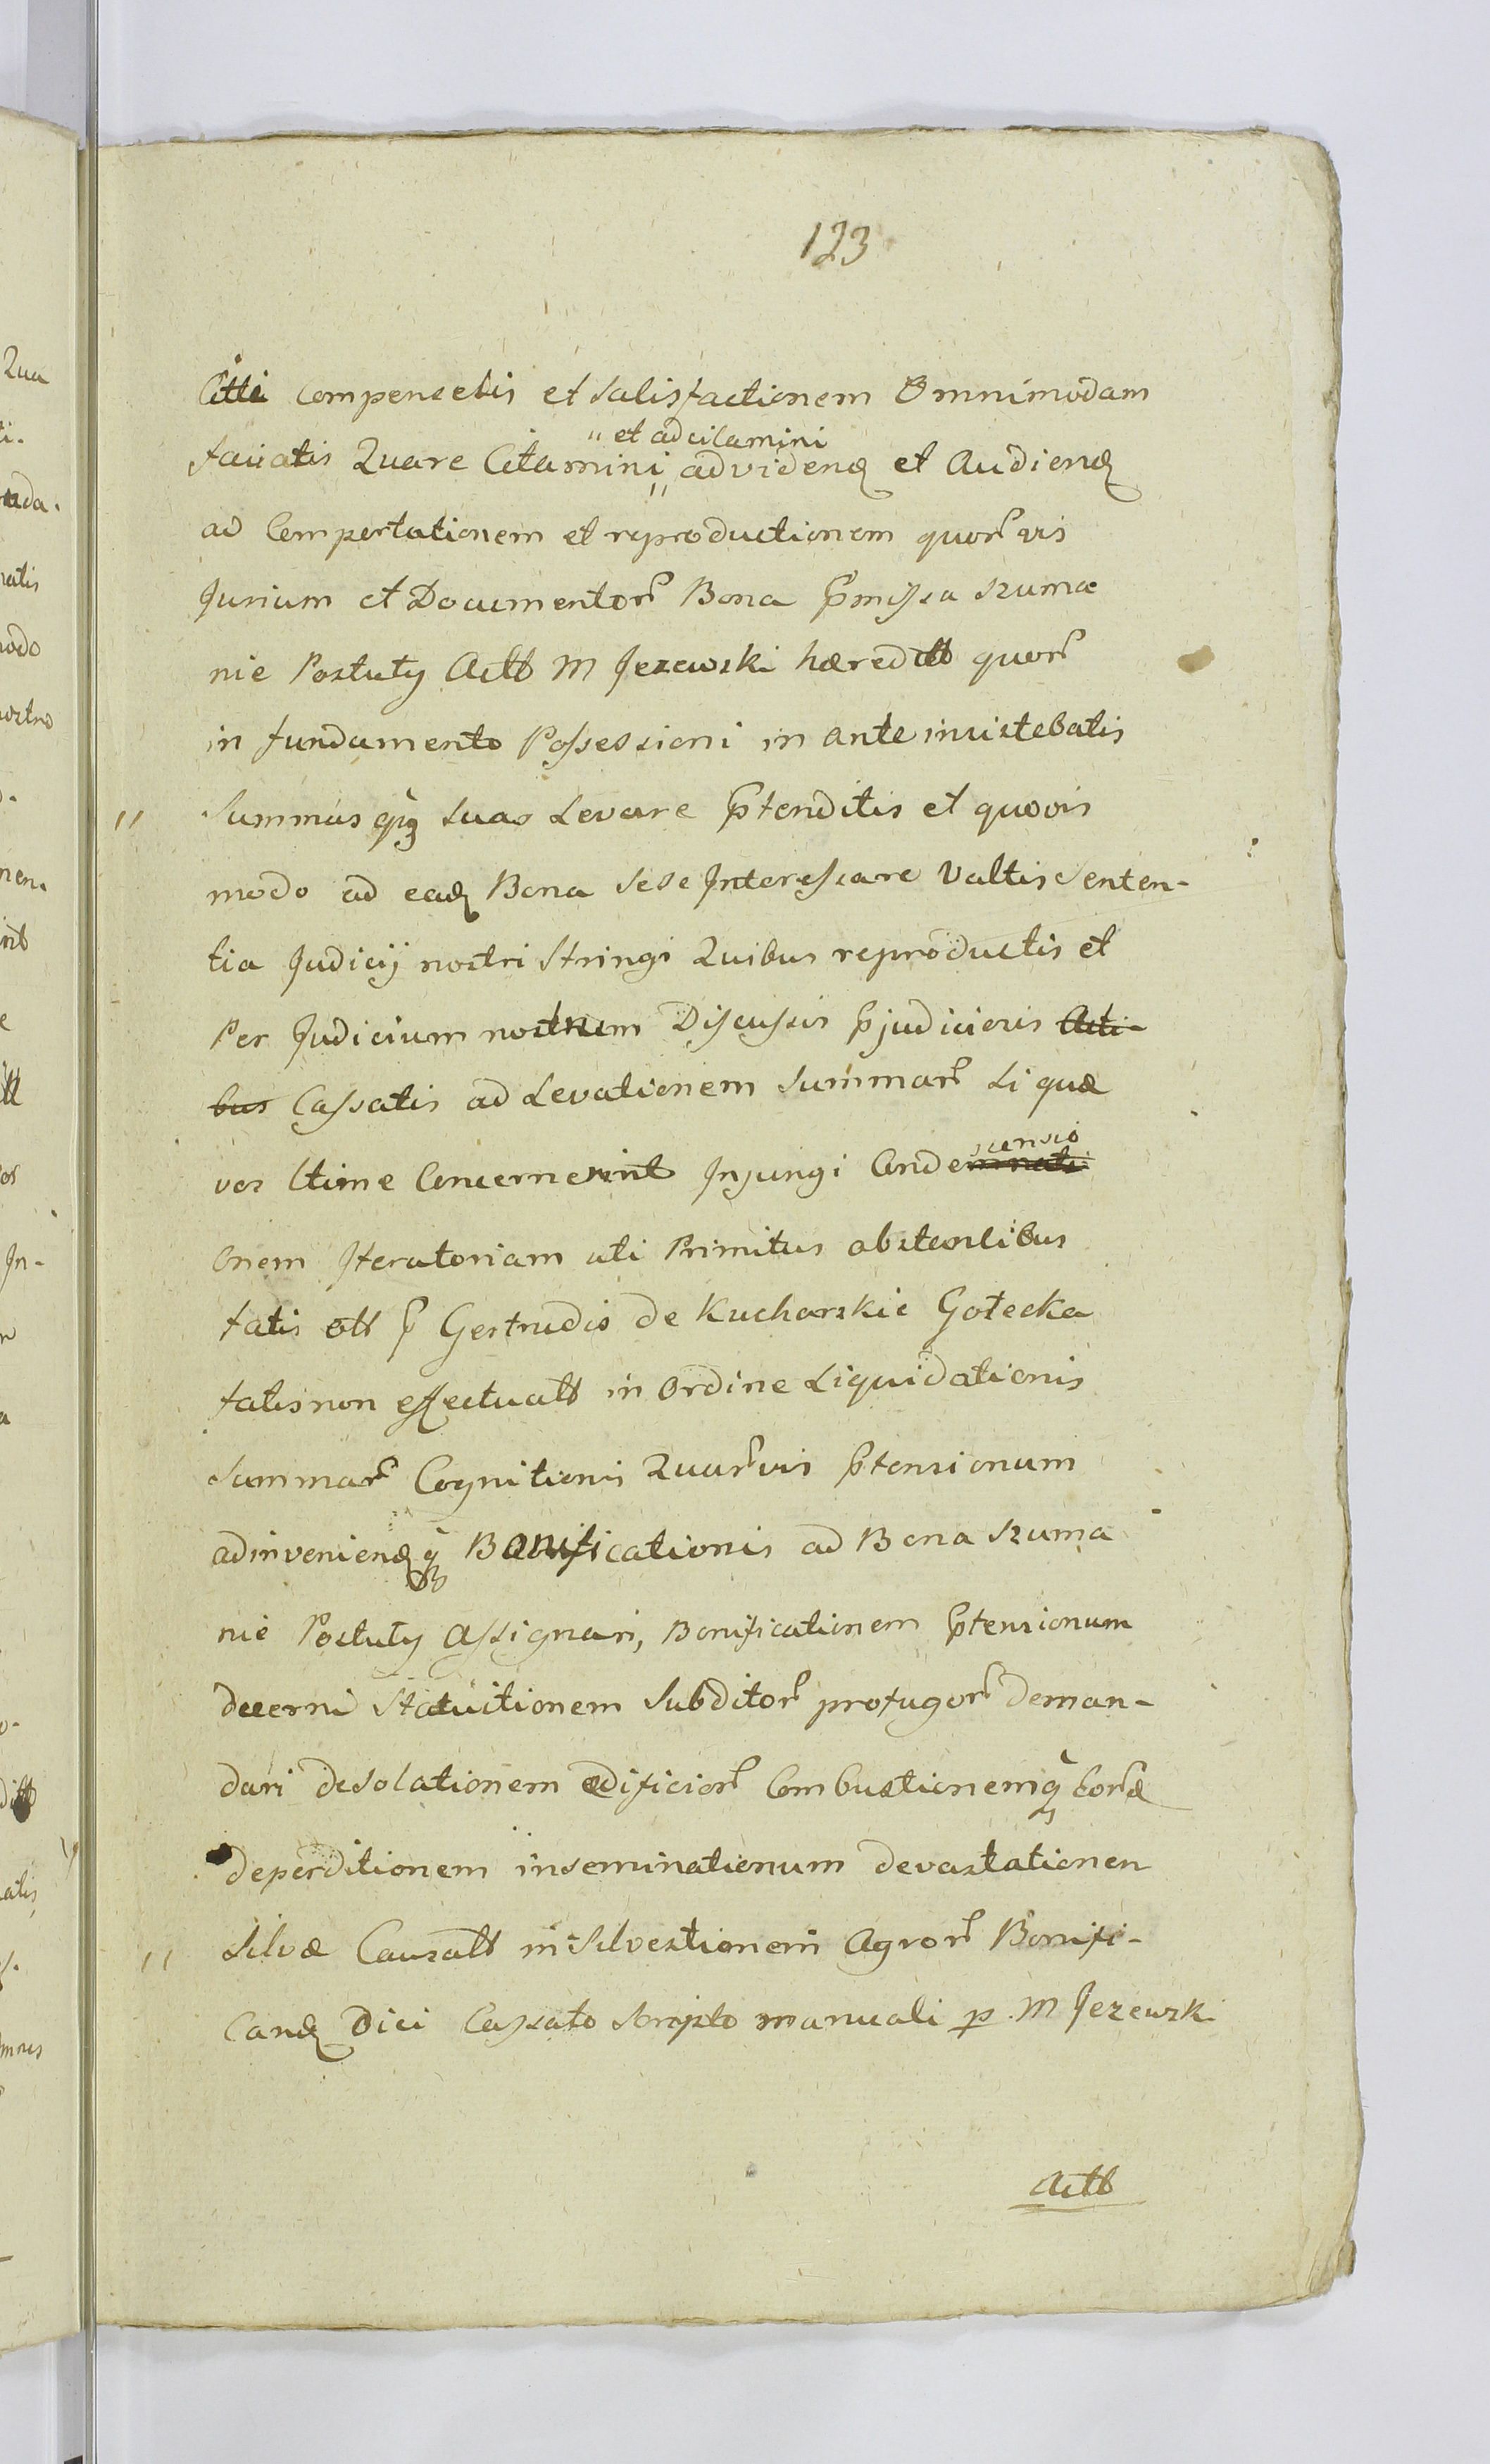 123
Citti compensetis et satisfactionem Omnimodam
" et adcitamini
faciatis Quare Citamini " ad videnɖ et Audienɖ
ad Comportationem et reproductionem quor̃ vis
Jurium et Documentor̃ Bona p̃missa Szuma
nie Postuty Actt M Jezewski hæreditt quor̃
in fundamento Possessioni in ante invistebatis
" Summas qȝ suas Levare p̃tenditis et quovis
modo ad eadɖ Bona sese Interessare Valtis Senten-
tia Judicij nostri Stringi Quibus reproductis et
Per Judicium nostrum Discussis p̃judiciosis Acti-
bus Cassatis ad Levationem Summar̃ si quæ
vos ltime Concernerint Injungi Condemnati
scensio
onem Iteratoriam uti Primitus obstantibus
fatis ott p̃ Gertrudis de Kucharskie Gotecka
fatis non effectuatt in Ordine Liquidationis
Summar̃ Cognitionis Quar̃vis p̃tensionum
adinvenienɖ q̃ Bonificationis ad Bona Szuma
nie Postuty Assignari, Bonificationem p̃tensionum
decerni Statuitionem Subditor̃ profugor̃ deman-
dari desolationem ædificior̃ Combustionemq̃ Eor̃d
deperditionem inseminationum devastationen
" Silvæ Causatt in Silvestionem Agror̃ Bonifi-
Canɖ Dici Cassato Scripto manuali p M Jezewsk
Actt